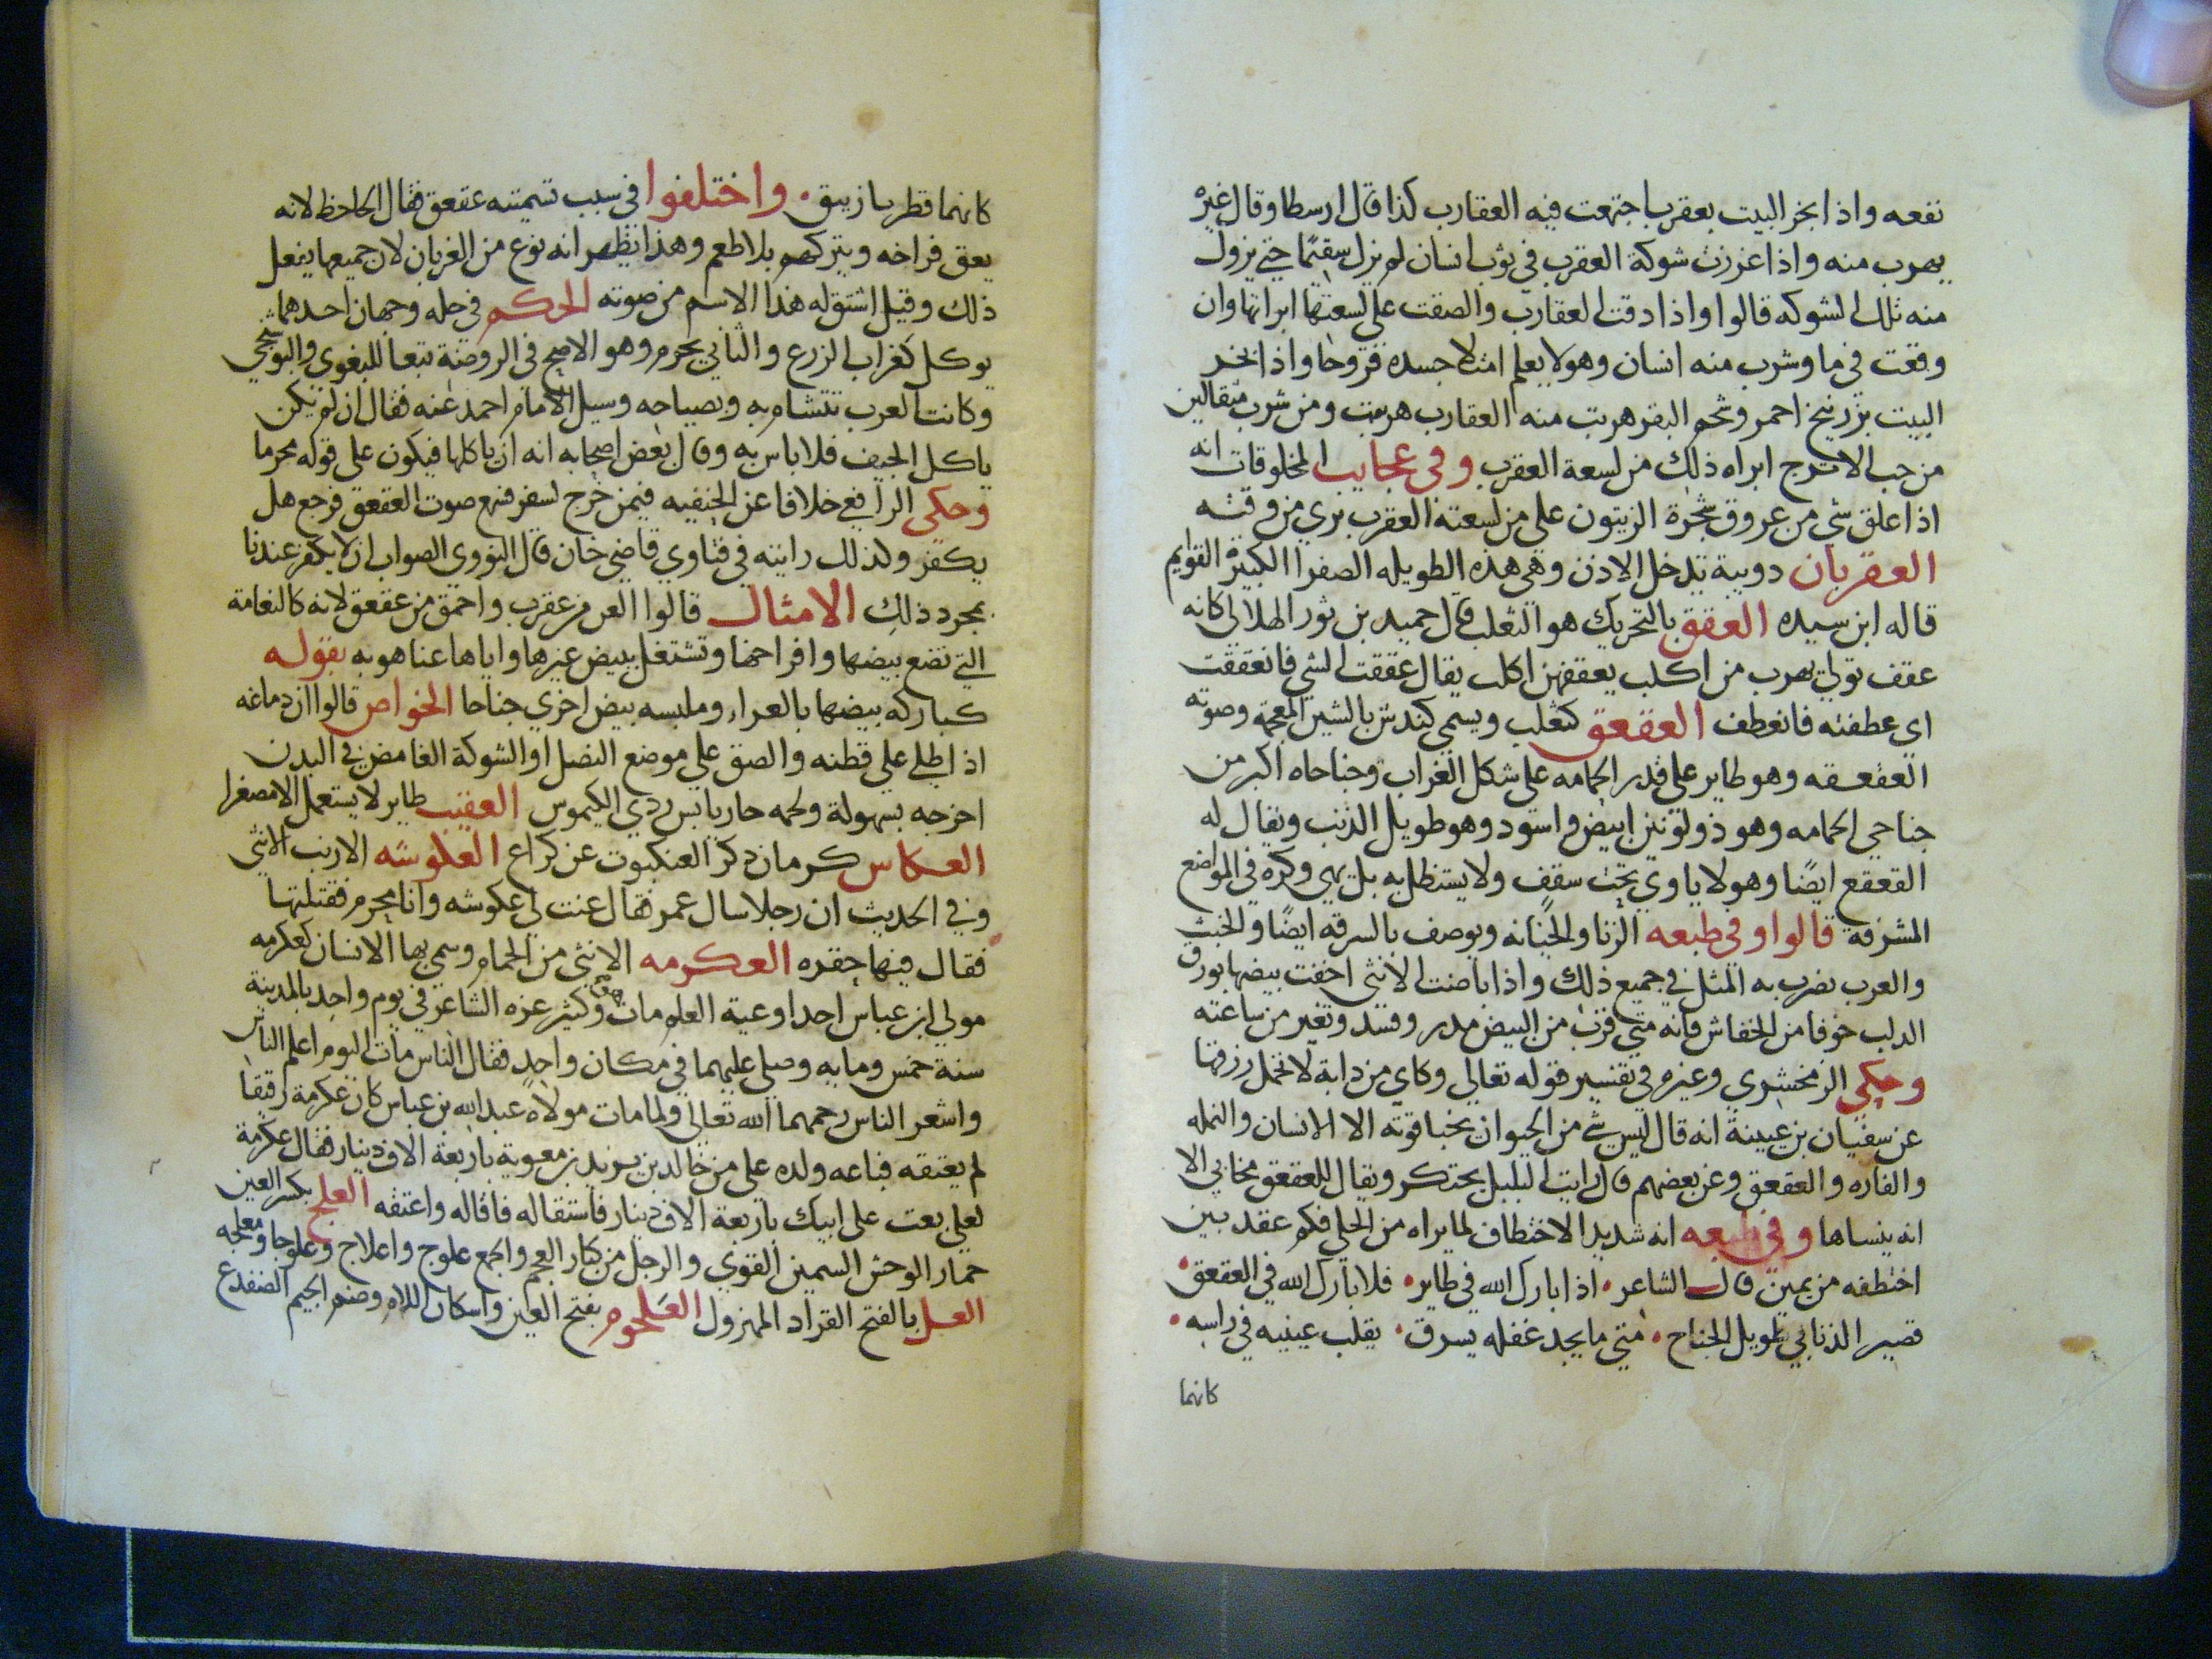 نفعه واذا بخر البيت بعقرب اجتمعت فيه العقارب كذا قال ارسطا وقال غيره
يهرب منه واذا غرزت شوكة العقرب في ثوب انسان لم يزل سقيمًا حتي يزول
منه تلك الشوكه قالوا واذا دقت العقارب والصقت على لسعتها ابراتها وان
وقعت في ما وشرب منه انسان وهو لا يعلم امتلا جسده قروحا واذا بخر
البيت بزرنيخ احمر وشحم البقر هربت منه العقارب هربت ومن شرب مثقالين
من حب الاترج ابراه ذلك من لسعة العقرب وفي عجايب المخلوقات انه
اذا علق شي من عروق شجرة الزيتون على من لسعته العقرب بري من وقته
العقربان دويبة تدخل الاذن وهي هذه الطويله الصفرا الكبيرة القوايم
قاله ابن سيده العقق بالتحريك هو الثعلب قال حميد بن ثور الهلالي كانه
عقف تولي يهرب من اكلب يعقفهن اكلب يقال عققت الشي فانعققت
اي عطفته فانعطف العقعق كثعلب ويسمي كندش بالشين المعجمة وصوته
العقعقه وهو طاير على قدر الحمامه على شكل الغراب وجناحاه اكبر من
جناحي الحمامه وهو ذو لونين ابيض واسود وهو طويل الذنب ويقال له
القعقع ايضًا وهو لا ياوي تحت سقف ولا يستظل به بل يهي وكره في المواضع
المشرفة قالوا وفي طبعه الزنا والخيانه ويوصف بالسرقه ايضًا والخبث
والعرب تضرب به المثل في جميع ذلك واذا باضت الانثى اخفت بيضها بورق
الدلب خوفا من الخفاش فانه متي قرب من البيض مدر وفسد وتغير من ساعته
وحكي الزمخشري وغيره في تفسير قوله تعالي وكاي من دابة لا تحمل رزقها
عن سفيان بن عيينة انه قال ليس شي من الحيوان يخبا قوته الا الانسان والنمله
والفاره والعقعق وعن بعضهم قال رايت البلبل يحتكر ويقال للعقعق مخابي الا
انه ينساها وفي طبعه انه شديد الاختطاف لما يراه من الحلي فكم عقد بين
اختطفه من يمين قال الشاعر • اذا بارك الله في طاير • فلا بارك الله في العقعق •
قصير الذنابي طويل الجناح • متي ما يجد غفله يسرق • يقلب عينيه في راسه •
كانهما
كانهما قطر بازيبق • واختلفوا في سبب تسميته عقعق فقال الجاحظ لانه
يعق فراخه ويتركهم بلا طعم وهذا يظهر انه نوع من الغربان لان جميعها يفعل
ذلك وقيل اشتق له هذا الاسم من صوته الحكم في حله وجهان احدهما
يوكل كغراب الزرع والثاني يحرم وهو الاصح في الروضة تبعا للبغوي والبوشنجي
وكانت العرب تتشام به وبصياحه وسيل الامام احمد عنه فقال ان لم يكن
ياكل الجيف فلا باس به وقال بعض اصحابه انه ياكلها فيكون على قوله محرما
وحكي الرافعي خلافا عن الحنفيه فيمن خرج لسفر فسمع صوت العقعق فرجع هل
يكفر ولذلك رايته في فتاوي قاضي خان قال النووي الصواب ان لا يكفر عندنا
بمجرد ذلك الامثال قالوا العن من عقرب واحمق من عقعق لانه كالنعامة
التي تضيع بيضها وافراخها وتشتغل ببيض غيرها واياها عنا هوبه بقوله
كتاركه بيضها بالعراء وملبسه بيض اخري جناحا الخواص قالوا ان دماغه
اذا طلي على قطنه والصق على موضع النصل او الشوكة الغامض في البدن
اخرجه بسهولة ولحمه حار يابس ردي الكيموس العقيب طاير لا يستعمل الا مصغرا
العكاس كرمان ذكر العنكبوت عن كراع العكوشه الارنب الانثي
وفي الحديث ان رجلا سال عمر فقال عنت لي عكوشه وانا محرم فقتلتها
فقال فيها جفره العكرمه الانثى من الحمام وسمي بها الانسان كعكرمه
مولي ابن عباس احد اوعية العلم مات هو وكثير عزه الشاعر في يوم واحد بالمدينة
سنة خمس ومايه وصلي عليهما في مكان واحد فقال الناس مات اليوم اعلم الناس
واشعر الناس رحمهما الله تعالي ولما مات مولاه عبد الله بن عباس كان عكرمة رقيقا
لم يعتقه فباعه ولده على من خالد بن يزيد بن معوية باربعة الاف دينار فقال عكرمة
لعلي بعت على ابيك باربعة الاف دينار فاستقاله فاقاله واعتقه العلج بكسر العين
حمار الوحش السمين القوي والرجل من كبار العجم والجمع علوج واعلاج وعلوجا ومعلجه
العل بالفتح القراد المهزول العلجوم بفتح العين واسكان اللام وضم الجيم الضفدع